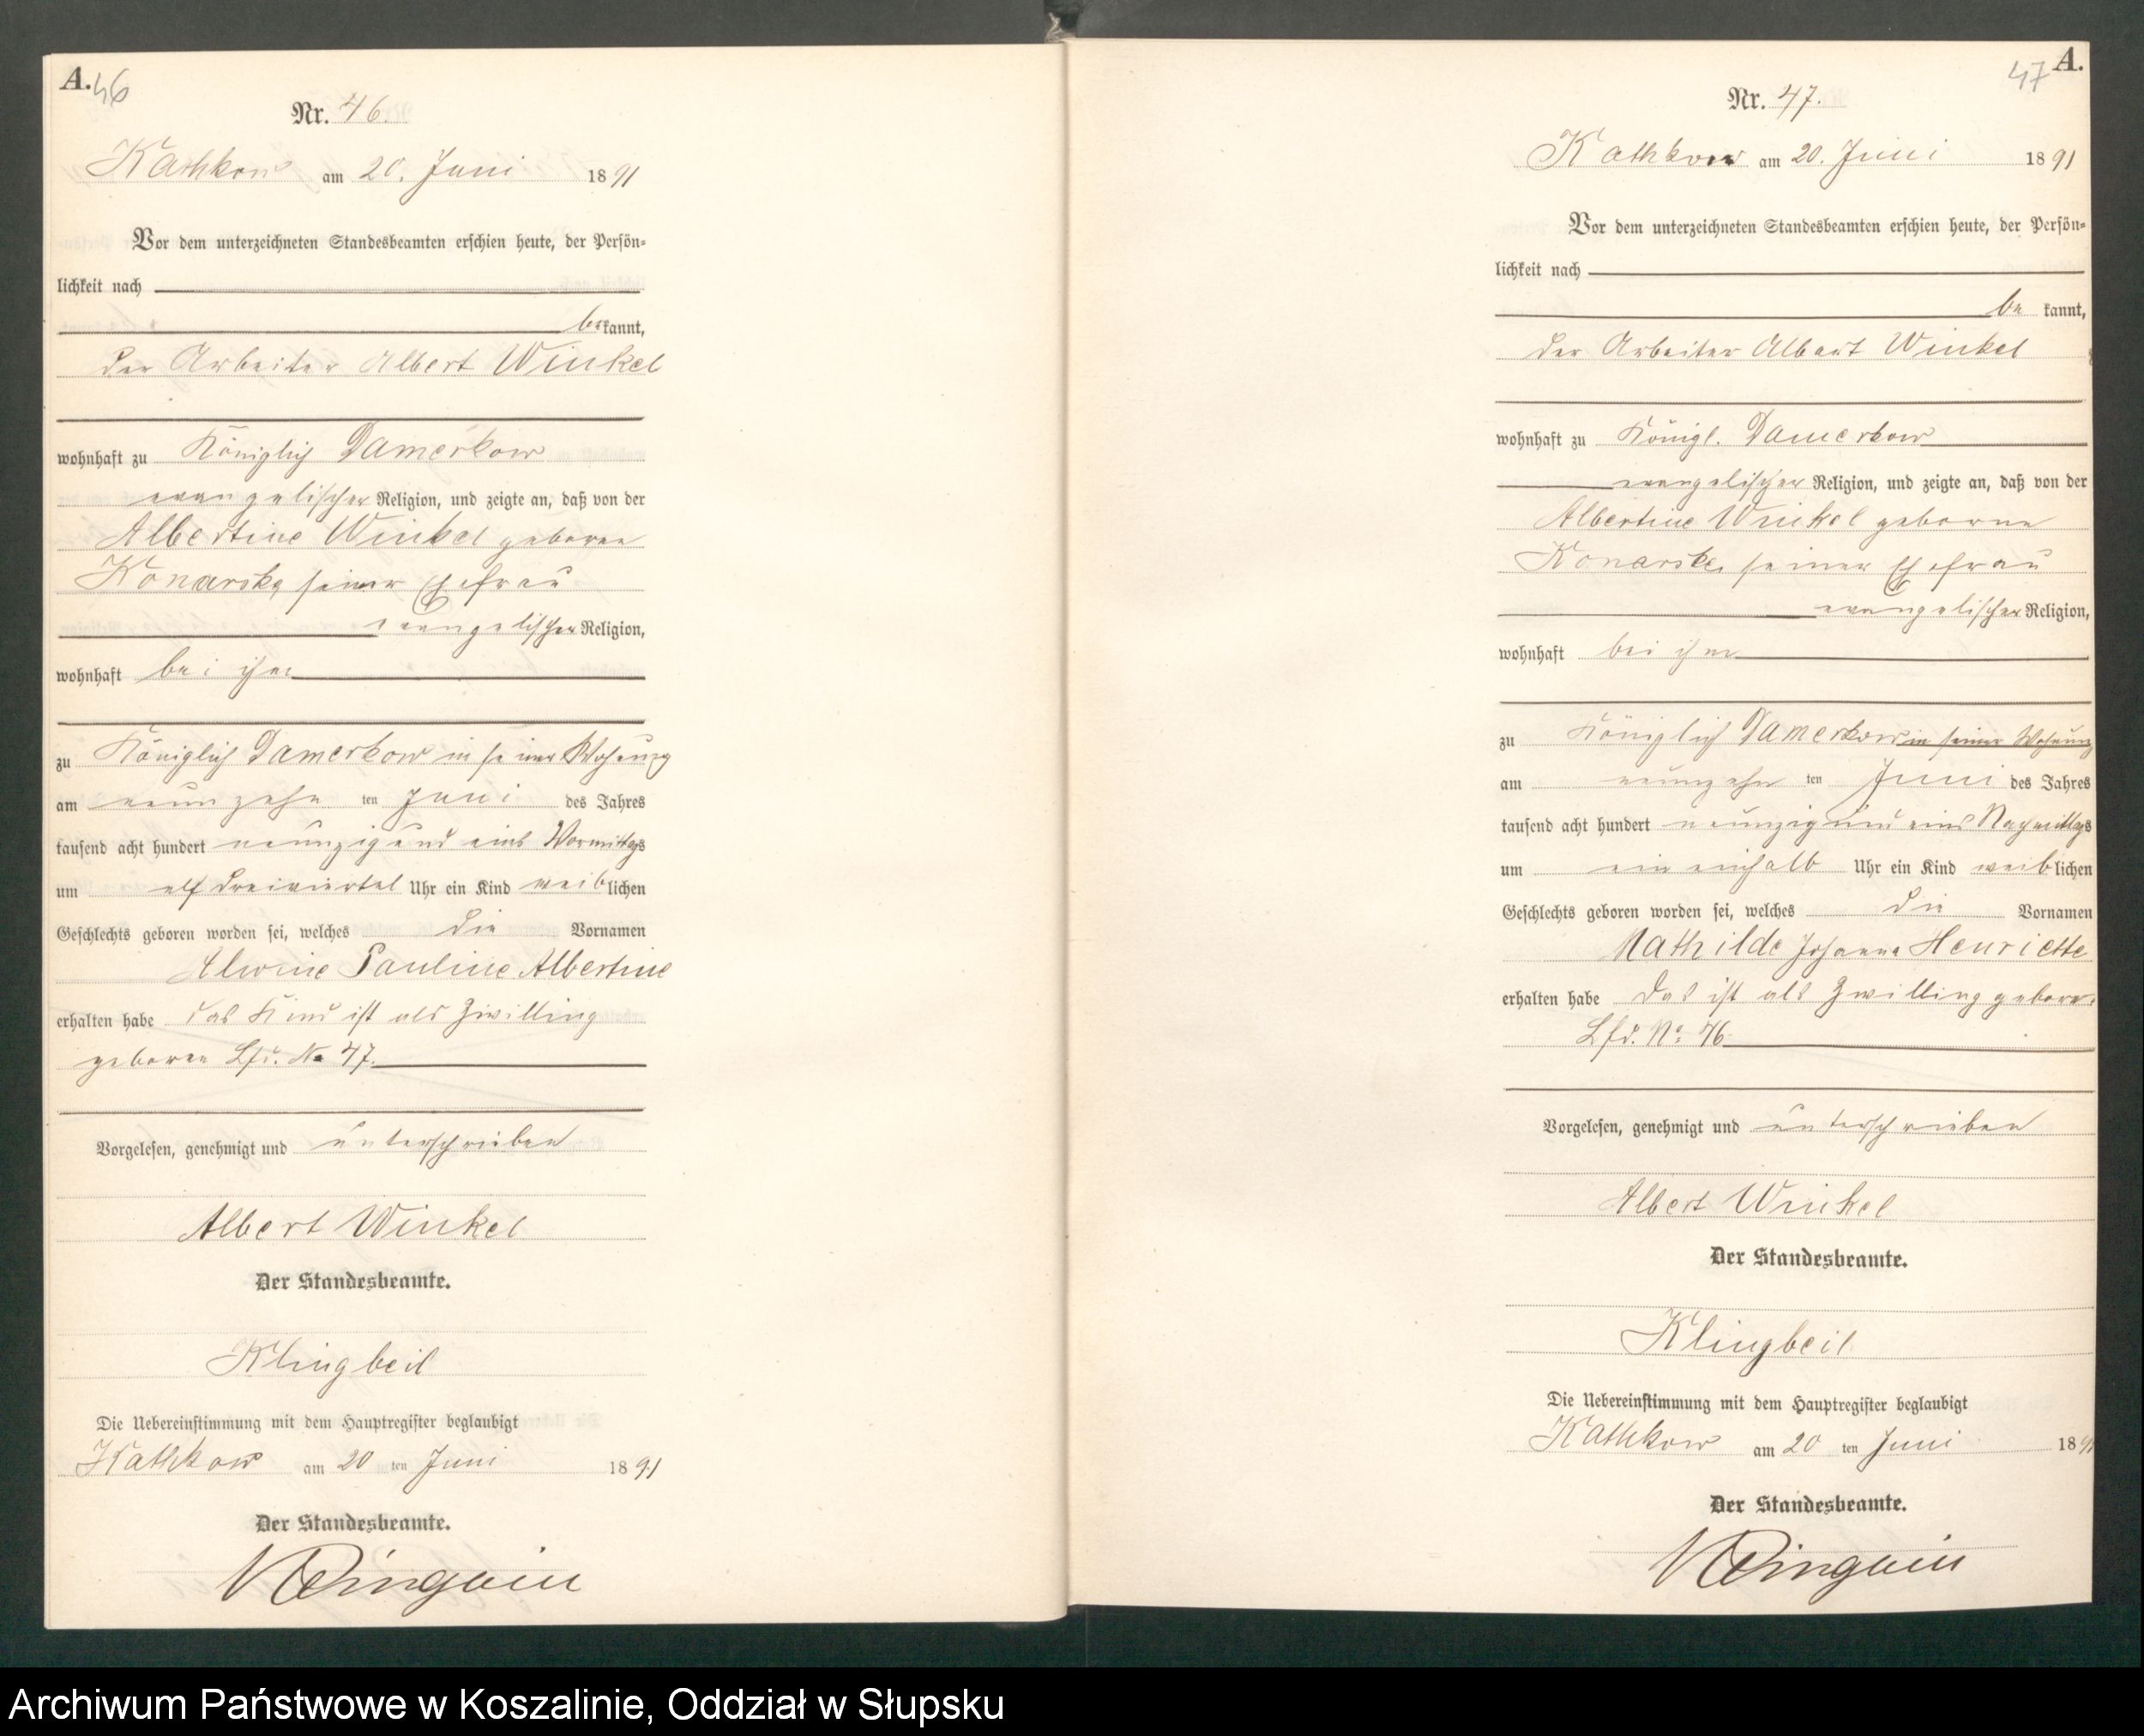 A. 46
Nr. 46.
Kathkow am 20. Juni 1891
Vor dem unterzeichneten Standesbeamten erschien heute, der Persön-
lichkeit nach
bekannt,
der Arbeiter Albert Winkel
wohnhaft zu Königlich Damerkow
evangelischer Religion, und zeigte an, daß von der
Albertine Winkel geboren
Konarske seiner Ehefrau
evangelischer Religion,
wohnhaft bei ihm
zu Königlich Damerkow in seiner Wohnung
am neunzehn ten Juni des Jahres
tausend acht hundert neunzig und eins Vormittags
um elf dreiviertel Uhr ein Kind weiblichen
Geschlechts geboren worden sei, welches die Vornamen
Alwine Pauline Albertine
erhalten habe das Kind ist als Zwilling
geboren Lfd. No 47.
Vorgelesen, genehmigt und unterschrieben
Albert Winkel
Der Standesbeamte.
Klingbeil
Die Uebereinstimmung mit dem Hauptregister beglaubigt
Kathkow am 20 ten Juni 1891
Der Standesbeamte.
47 A.
Nr. 47.
Kathkow am 20. Juni 1891
Vor dem unterzeichneten Standesbeamten erschien heute, der Persön-
lichkeit nach
be kannt,
der Arbeiter Albert Winkel
wohnhaft zu Königl. Damerkow
evangelischer Religion, und zeigte an, daß von der
Albertine Winkel geborne
Konarske seiner Ehefrau
evangelischer Religion,
wohnhaft bei ihm
zu Königlich Damerkow in seiner Wohnung
am neunzehn ten Juni des Jahres
tausend acht hundert neunzig und eins Nachmittags
um ein einhalb Uhr ein Kind weiblichen
Geschlechts geboren worden sei, welches die Vornamen
Mathilde Johanna Henriette
erhalten habe Das ist als Zwilling geboren
Lfd. No. 46
Vorgelesen, genehmigt und unterschrieben
Albert Winkel
Der Standesbeamte.
Klingbeil
Die Uebereinstimmung mit dem Hauptregister beglaubigt
Kathkow am 20 ten Juni 1891
Der Standesbeamte.
Archiwum Państwowe w Koszalinie, Oddział w Słupsku